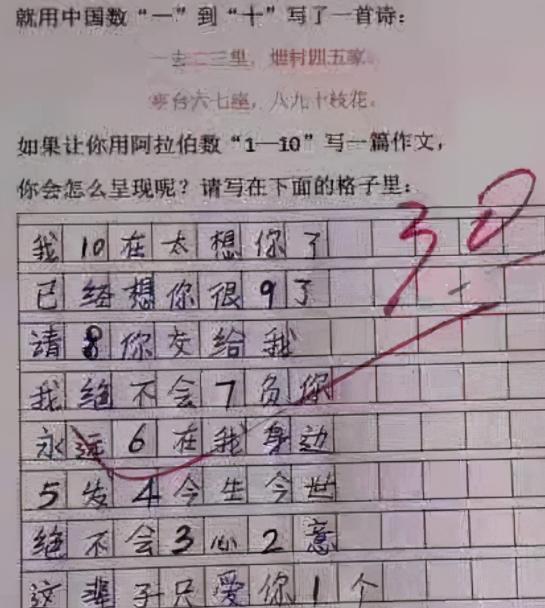 就用中国数“一”到“十”写了一首诗：
一去二三里，烟村四五家。
亭台六七座，八九十枝花。
如果让你用阿拉伯数“1—10”写一篇作文，
你会怎么呈现呢？请写在下面的格子里：
30
我10在太想你了
已经想你很9了
请8你交给我
我绝不会7负你
永远6在我身边
5发4今生今世
绝不会3心2意
这辈子只爱你1个